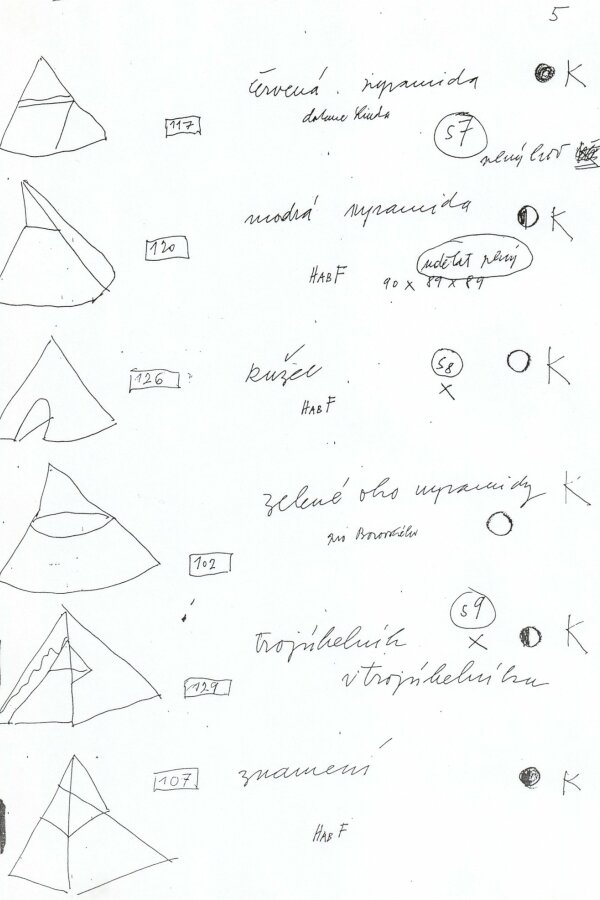 5
červená pyramida K
117
57
modrá pyramida K
120
udělat plný
HABF 90 x 89 x 89
126 kužel 58 K
x
HABF
zelené oko pyramidy K
pro
102
59
trojúhelník x K
v trojúhelníku
129
107 znamení K
HABF